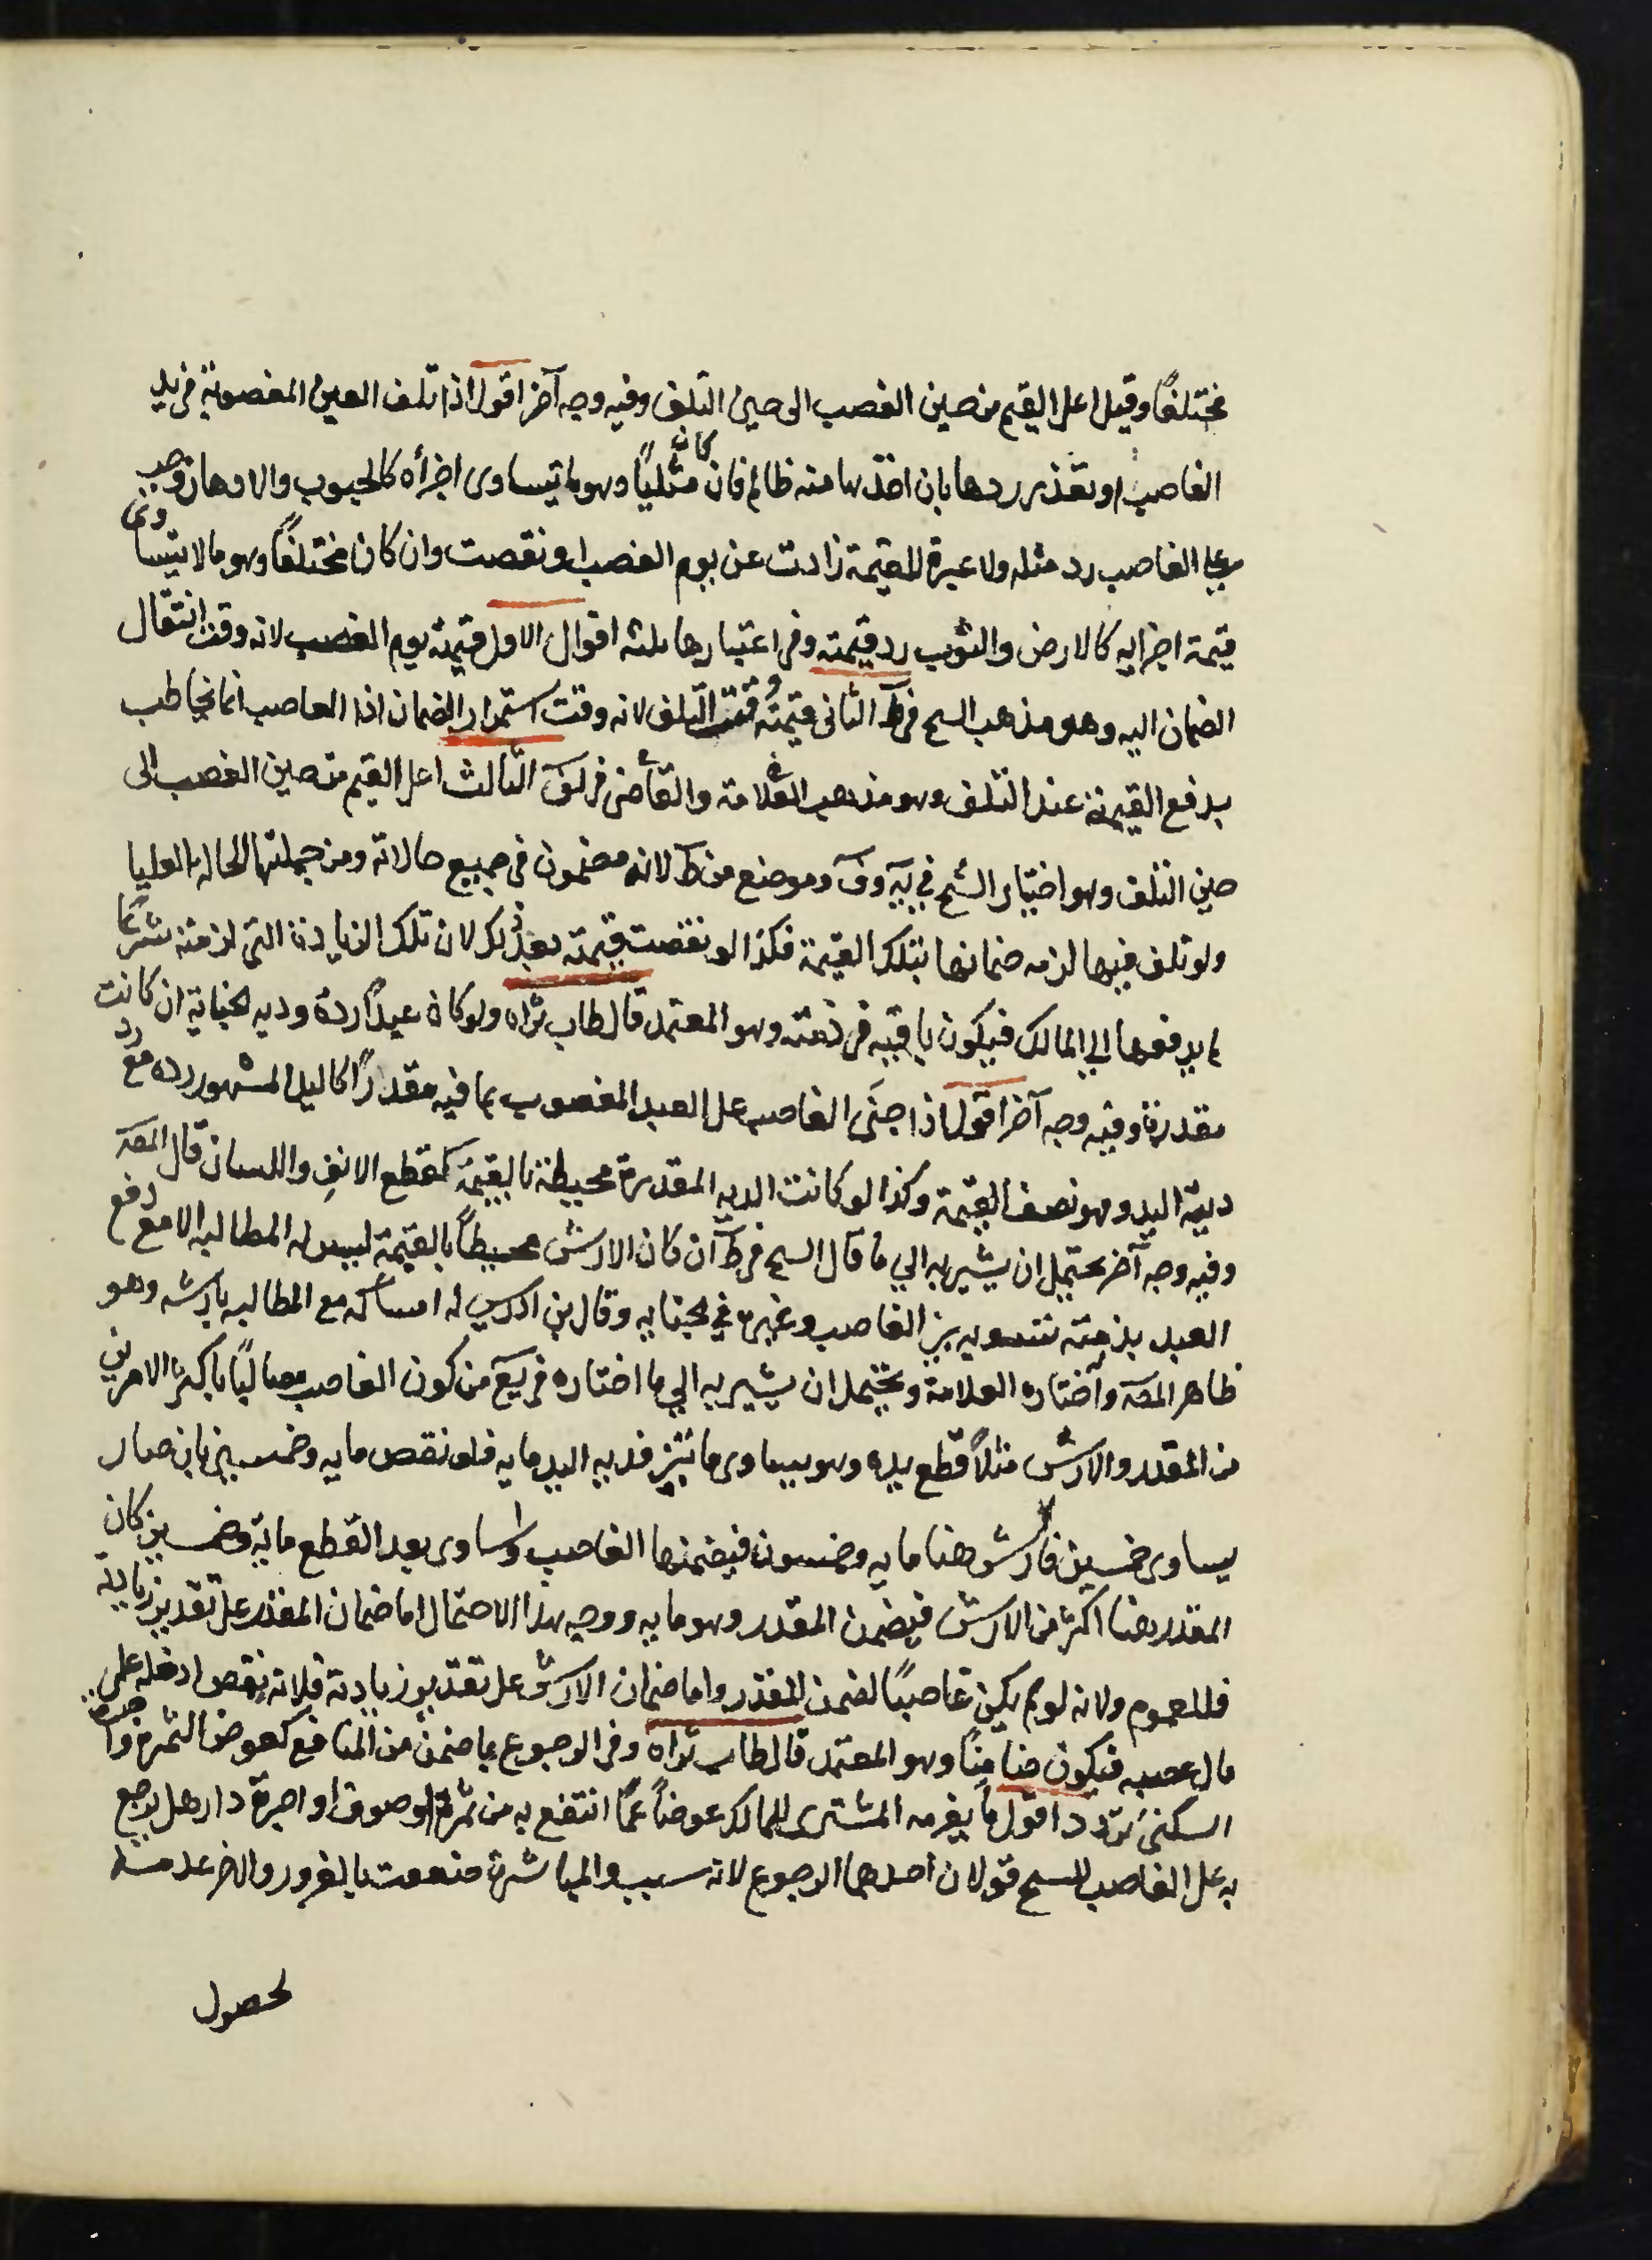 مختلفا وقيل اعلى القيم من حين الغصب الى حين التلف وفيه وجه آخر اقول اذا تلف العين المغصوبة في يد
الغاصب او تعذر ردها بان اخذها منه ظالم فان كان مثليا وهو ما يتساوى اجزأه كالحبوب والادهان وجب
على الغاصب رد مثله ولا عبرة للقيمة زادت عن يوم الغصب او نقصت وان كان مختلفا وهو ما لا يتساوى
قيمة اجزايه كالارض والثوب رد قيمته وفي اعتبارها ثلثه اقوال الاول قيمته يوم الغصب لانه وقت انتقال
الضمان اليه وهو مذهب الشيخ في ط الثانى قيمته وقت التلف لانه وقت استمرار الضمان اذا الغاصب انما يخاطب
بدفع القيمة عند التلف وهو مذهب العلامة والقاضى في لف الثالث اعلى القيم من حين الغصب الى
حين التلف وهو اختيار الشيخ في يه وف وموضع من ط لانه مضمون في جميع حالاته ومن جملتها الحالة العليا
ولو تلف فيها لزمه ضمانها بتلك القيمة فكذا لو نقصت قيمته بعد ذلك لان تلك الزيادة التي لزمته شرعا
لم يدفعها الى المالك فيكون باقيه في ذمته وهو المعتمد قال طاب ثراه ولو كان عبدا رده ودية الجناية ان كانت
مقدرة وفيه وجه آخر اقول اذا جنى الغاصب على العبد المغصوب بما فيه مقدرا كاليد المشهور رده مع رد
دية اليد وهو نصف القيمة وكذا لو كانت الديه المقدرة محيطة بالقيمة كقطع الانف واللسان قال المصه
وفيه وجه آخر يحتمل ان يشير به الى ما قال الشيخ في ط ان كان الارش محيطا بالقيمة ليس له المطالبه الا مع دفع
العبد بذمته تسويه بين الغاصب وغيره في الجنايه وقال بن ادريس له امساكه مع المطالبه بارشه وهو
ظاهر المصه واختاره العلامة ويحتمل ان يشير به الى ما اختاره في يع من كون الغاصب مطالبا باكثر الامرين
من المقدر والارش مثلا قطع يده وهو يساوى مأتين فديه اليد مايه فلو نقص مايه وخمسين بان صار
يساوى خمسين فارش هنا مايه وخمسون فيضمنها الغاصب ولو ساوى بعد القطع ماية وخمسين كان
المقدر هنا اكثر من الارش فيضمن المقدر وهو مايه ووجه هذا الاحتمال اما ضمان المقدر على تقدير زيادته
فللعموم ولانه لو لم يكن غاصبا لضمن المقدر واما ضمان الارش على تقدير زيادته فلانه نقص ادخله على
مال غصبه فيكون ضامنا وهو المعتمد قال طاب ثراه وفي الرجوع بما ضمن من المنافع كعوض الثمرة واجرة
السكنى تردد اقول ما يغرمه المشترى للمالك عوضا عما انتفع به من ثمرة او صوف او اجرة دار هل يرجع
به على الغاصب للشيخ قولان احدهما الرجوع لانه سبب والمباشرة ضعفت بالغرور والاخر عدمه
لحصول